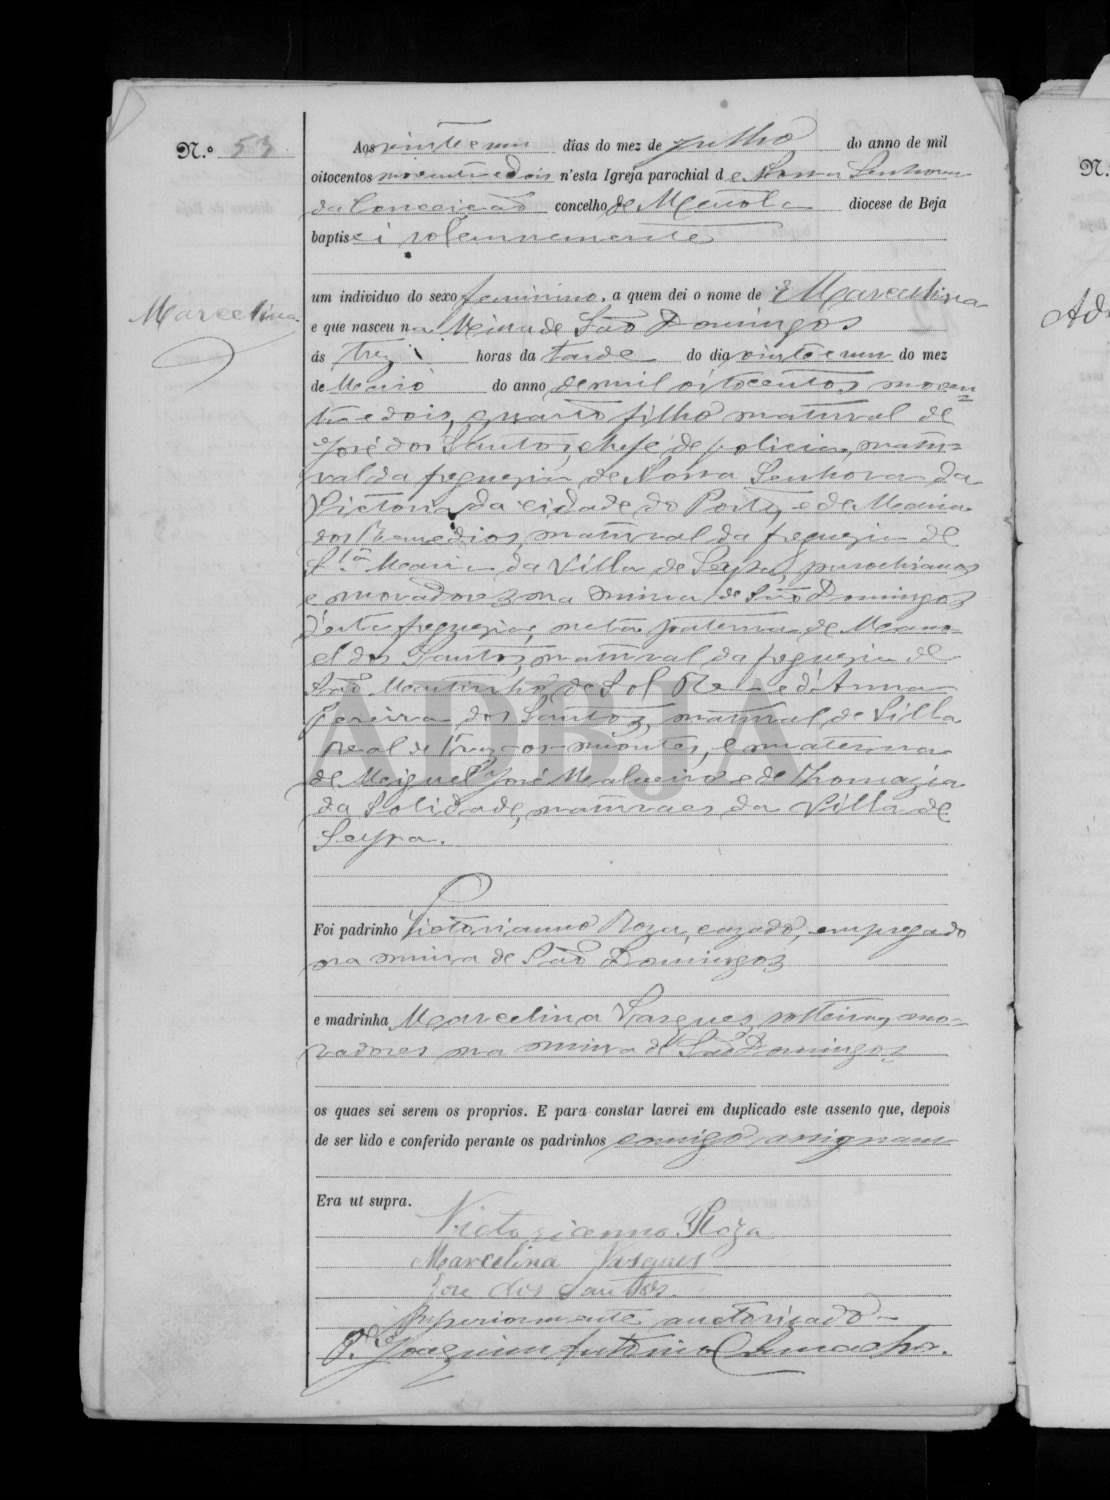 N.º 53
Aos vinte e um dias do mez de Julho do anno de mil
oitocentos noventa e dois n'esta Igreja parochial de Nossa Senhora
da Conceição concelho de Mertola diocese de Beja
baptisei solemnemente
um individuo do sexo feminino, a quem dei o nome de Marcelina
Marcelina
e que nasceu na Mina de São Domingos
ás trez horas da tarde do dia vinte e um do mez
de Maio do anno de mil oitocentos noven
ta e dois, quarto filho natural de
José dos Santos, chefe de policia, natu-
ral da freguezia de Nossa Senhora da
Victoria da cidade do Porto, e de Maria
dos Remedios, natural da freguezia de
S.ta Maria da Villa de Serpa, parochianos
e moradores na mina de São Domingos
d'esta freguezia, neta paterna de Mano-
el dos Santos, natural da freguezia de
São Martinho de e d'Anna
Pereira dos Santos, natural de Villa
Real de Traz-os-montes, e materna
de Miguel José e de Thomazia
da Solidade, naturaes da Villa de
Serpa.
Foi padrinho Victorianno Roza, cazado, empregado
na mina de São Domingos
e madrinha Marcelina Vasques, solteira, mo-
radores na mina de São Domingos
os quaes sei serem os proprios. E para constar lavrei em duplicado este assento que, depois
de ser lido e conferido perante os padrinhos comigo assignam
Era ut supra.
Victorianno Roza
Marcelina Vasques
José dos Santos
Superiormente auctorizado
P.e Joaquim Antonio Camacho.
N.
ADBJA